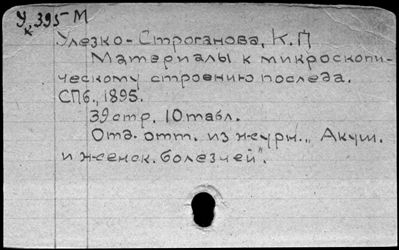 У 395-М
к
Улезко-Строганова, К.П
Материалы к микроскопи-
ческому строению последа.
СПб., 1895.
39 стр. 10 табл.
Отд. отт. из журн. „Акуш.
и женск. болезней".